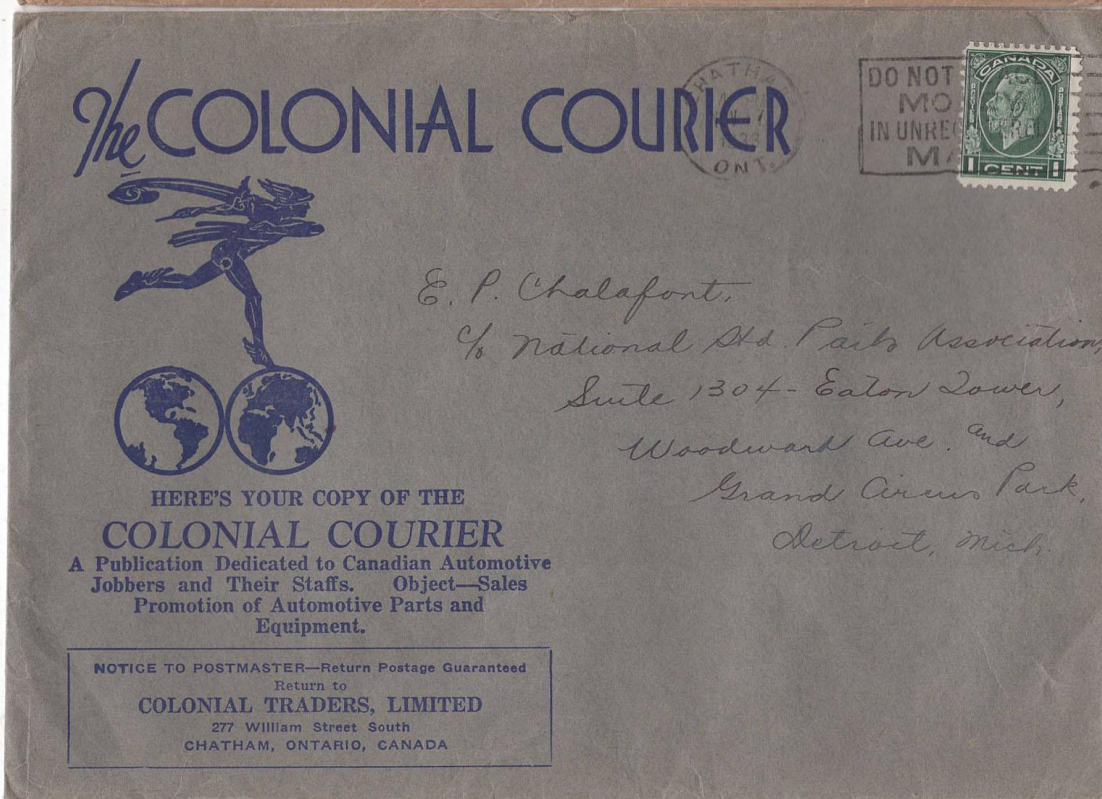 The COLONIAL COURIER
CHATHAM
ONT.
DO NOT
MO
IN UNREG
MA
CANADA
1 CENT 1
E. P. Chalafont,
c/o National Std. Parts Association,
Suite 1304 - Eaton Tower,
Woodward Ave. and
Grand Circus Park,
Detroit, Mich.
HERE'S YOUR COPY OF THE
COLONIAL COURIER
A Publication Dedicated to Canadian Automotive
Jobbers and Their Staffs. Object—Sales
Promotion of Automotive Parts and
Equipment.
NOTICE TO POSTMASTER—Return Postage Guaranteed
Return to
COLONIAL TRADERS, LIMITED
277 William Street South
CHATHAM, ONTARIO, CANADA